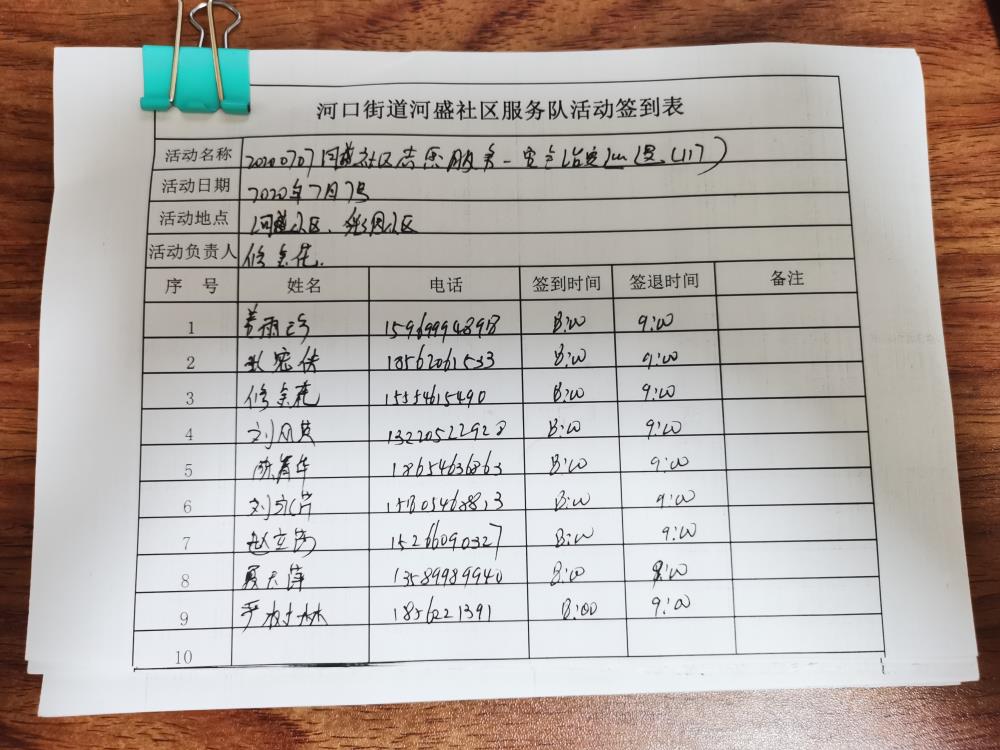 河口街道河盛社区服务队活动签到表
活动名称 20200707河盛社区志愿服务-安全治安巡逻(117)
活动日期 2020年7月7号
活动地点 河盛社区、社区
活动负责人 修金花
序号 姓名 电话 签到时间 签退时间 备注
1 姜丽珍 8:00 9:00
2 18562061533 8:00 9:00
3 修金花 15554615490 8:00 9:00
4 刘凤英 13220522928 8:00 9:00
5 陈青华 18654636863 8:00 9:00
6 刘 15805468813 8:00 9:00
7 赵立 15266090327 8:00 9:00
8 夏天萍 13589989940 8:00 9:00
9 严树林 1856221391 8:00 9:00
10